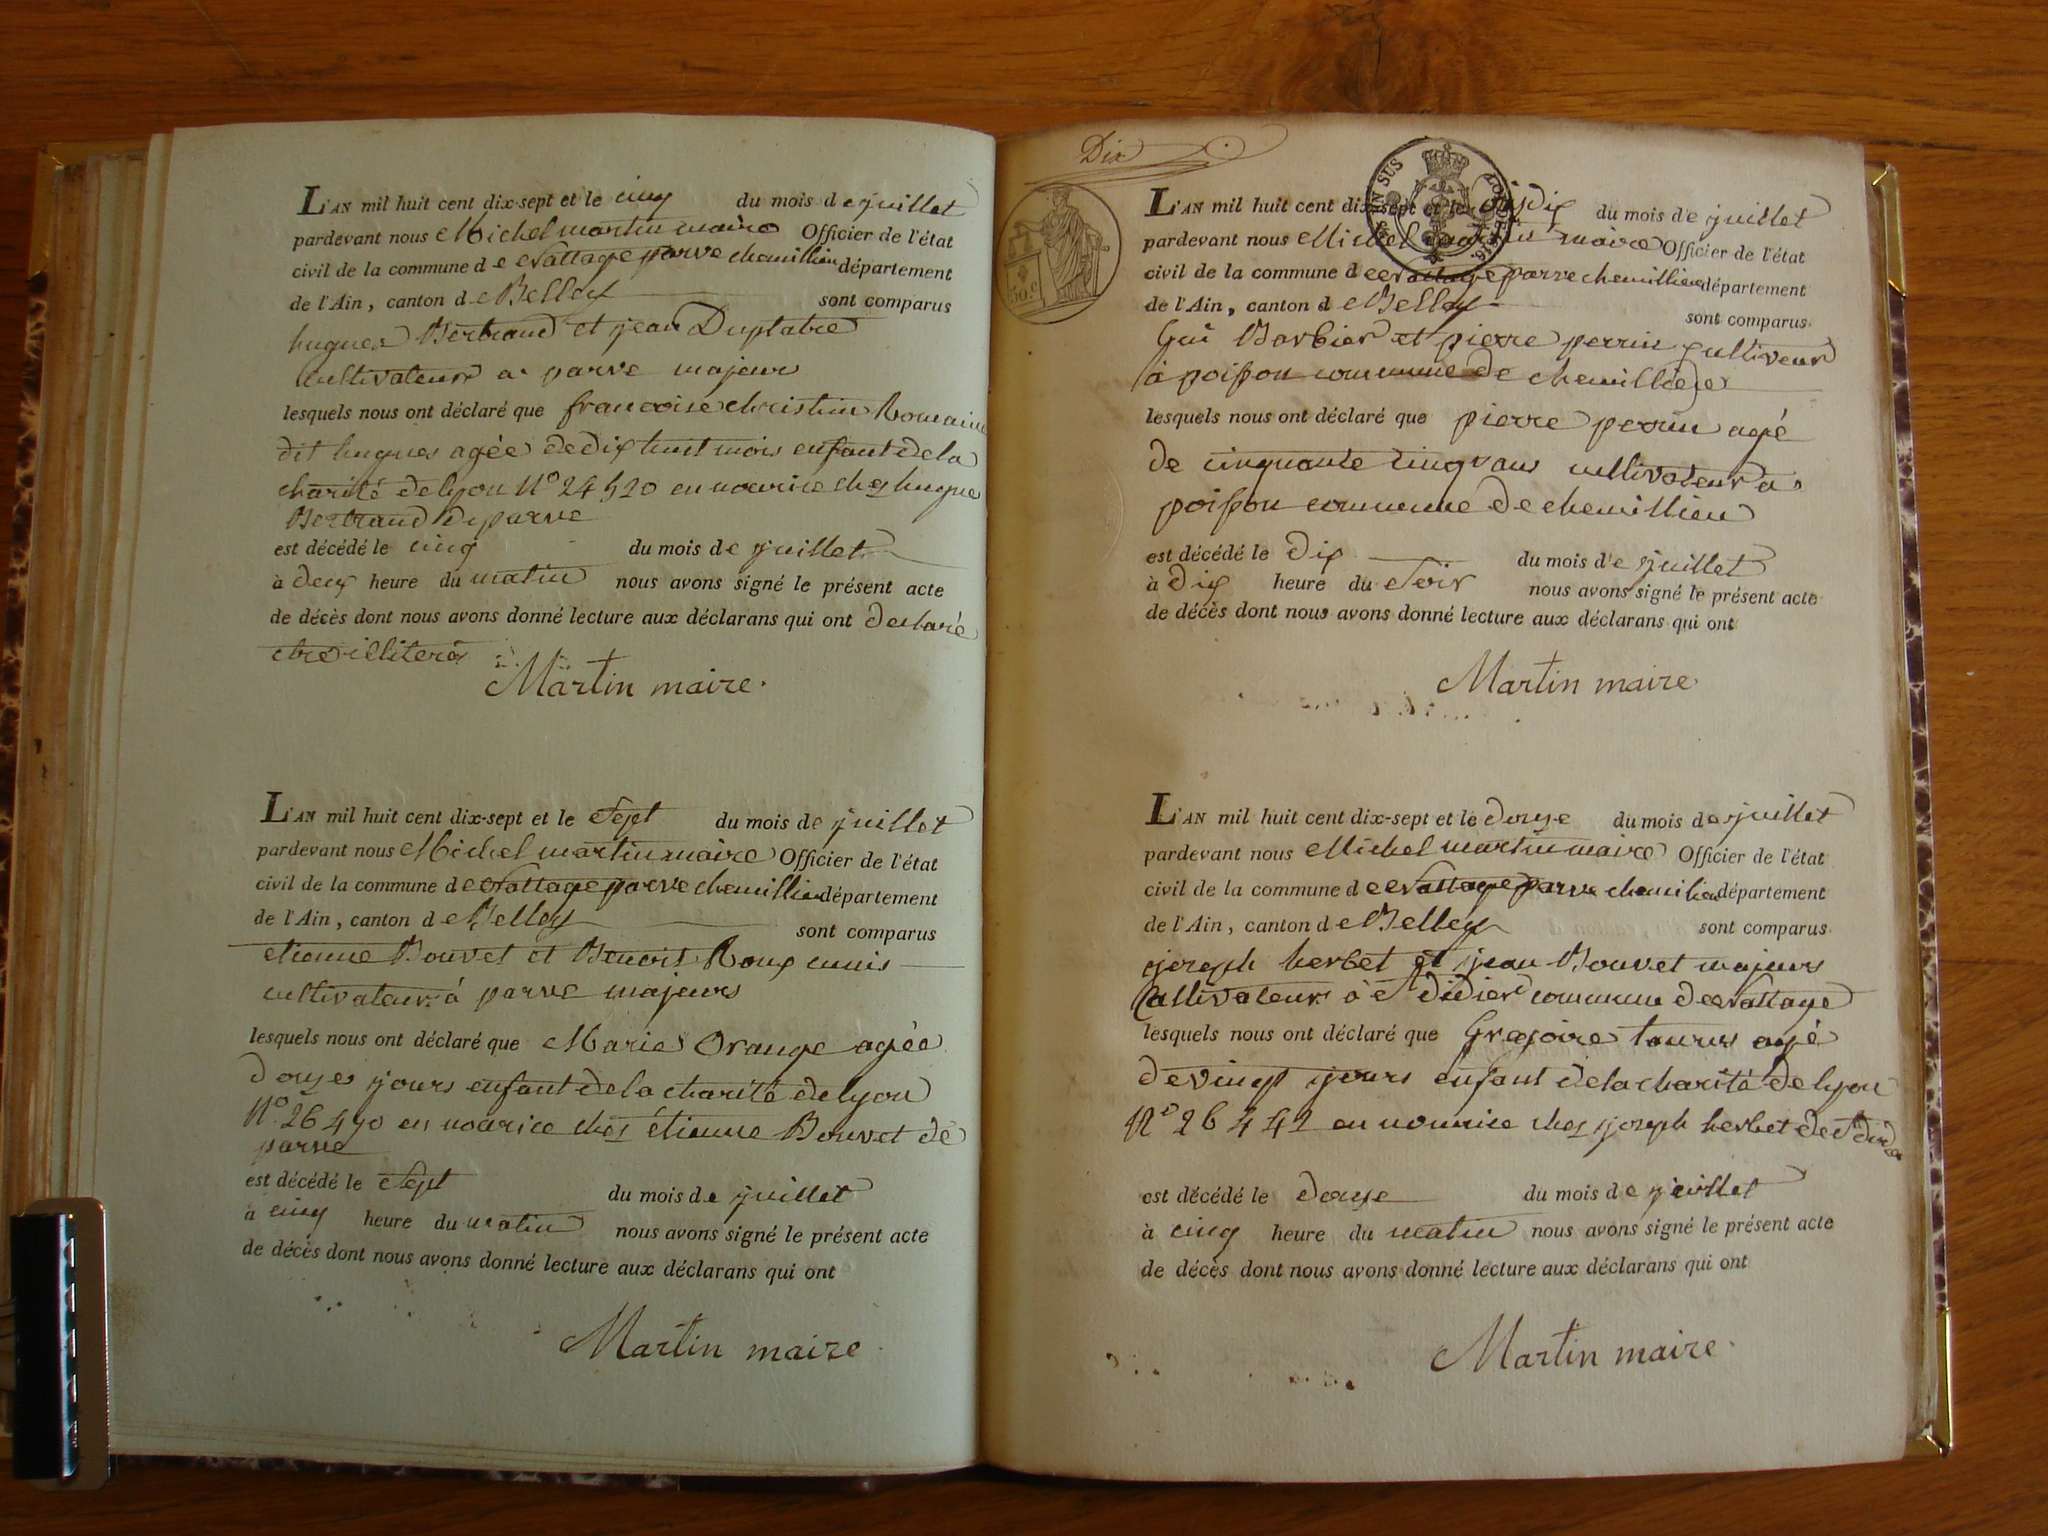 L'AN mil huit cent dix-sept et le cinq du mois de juillet
pardevant nous Michel martin maire Officier de l'état
civil de la commune de Nattage parve chemillieu département
de l'Ain, canton de Belley sont comparus
hugues Bertrand et jean Duplatre
cultivateurs a parve majeurs
lesquels nous ont déclaré que francoise christin Romaine
dit hugues agée de dix huit mois enfant de la
charité de lyon N° 24520 en nourice chez hugue
Bertrand de parve
est décédé le cinq du mois de juillet
à deux heure du matin nous avons signé le présent acte
de décès dont nous avons donné lecture aux déclarans qui ont declaré
etre illiterés
Martin maire.
L'AN mil huit cent dix-sept et le Sept du mois de juillet
pardevant nous Michel martin maire Officier de l'état
civil de la commune de Nattage parve chemillieu département
de l'Ain, canton de Belley sont comparus
etienne Bouvet et Benoit Roux
cultivateurs á parve majeurs
lesquels nous ont déclaré que Marie Orange agée
douze jours enfant de la charité de lyon
N° 26490 en nourice chez étienne Bouvet de
parve
est décédé le Sept du mois de juillet
à cinq heure du matin nous avons signé le présent acte
de décès dont nous avons donné lecture aux déclarans qui ont
Martin maire
Dix
L'AN mil huit cent dix-sept et le dix du mois de juillet
pardevant nous Michel martin maire Officier de l'état
civil de la commune de Nattage parve chemillieu département
de l'Ain, canton de Belley sont comparus
Gui Barbier et pierre perrin cultiveur
à poisson commune de chemillieu
lesquels nous ont déclaré que pierre perrin agé
de cinquante cinq ans cultivateur a
poisson commune de chemillieu
est décédé le dix du mois de juillet
à dix heure du Soir nous avons signé le présent acte
de décès dont nous avons donné lecture aux déclarans qui ont
Martin maire
L'AN mil huit cent dix-sept et le douze du mois de juillet
pardevant nous Michel martin maire Officier de l'état
civil de la commune de Nattage parve chemilieu département
de l'Ain, canton de Belley sont comparus
joseph herbet et jean Bouvet majeurs
Cultivateurs à St didier commune de Nattage
lesquels nous ont déclaré que Gregoire agé
de vingt jours enfant de la charité de lyon
N° 26442 en nourrice chez joseph herbet de St didier
est décédé le douze du mois de juillet
à cinq heure du matin nous avons signé le présent acte
de décès dont nous avons donné lecture aux déclarans qui ont
Martin maire.